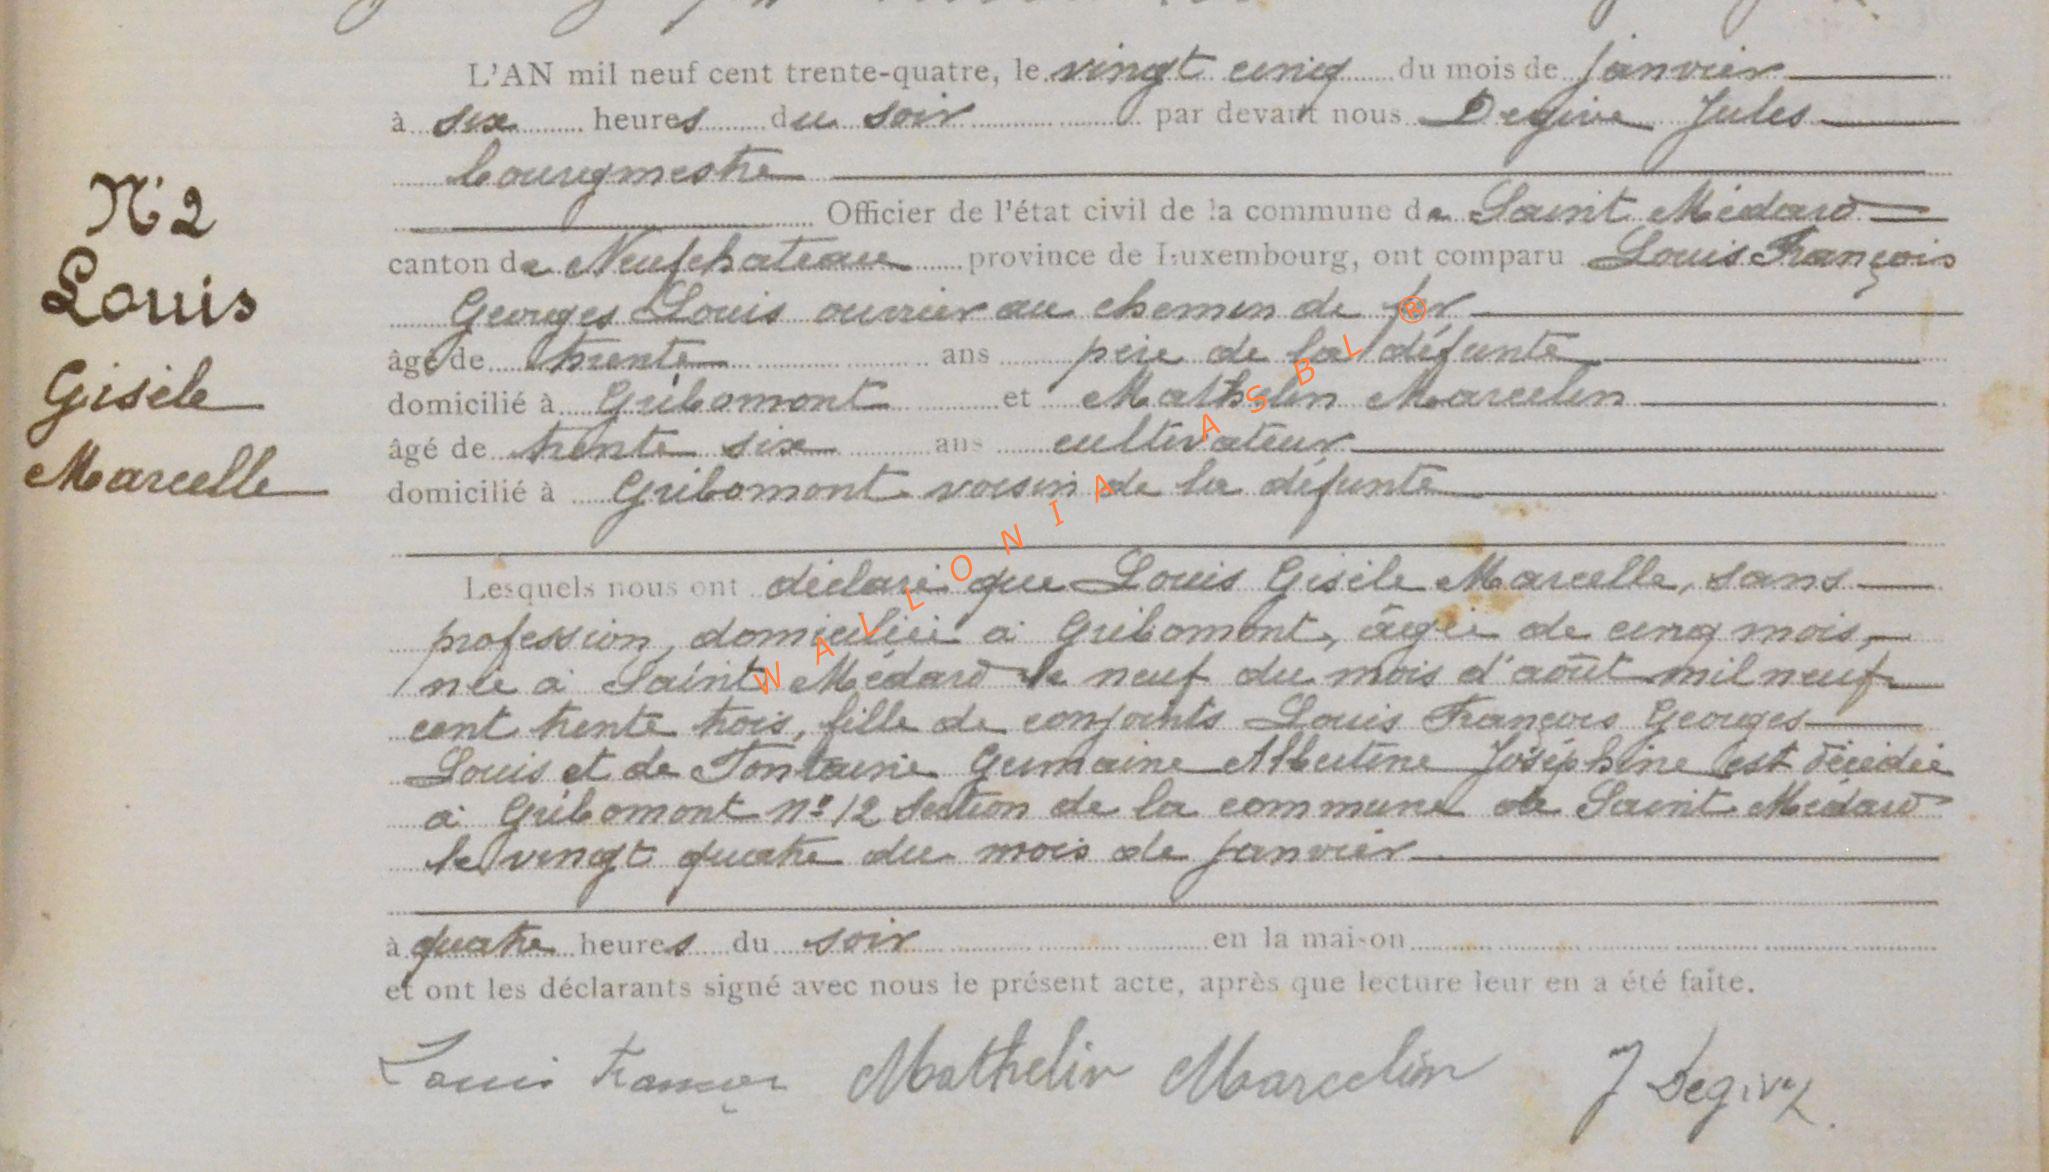 L'AN mil neuf cent trente-quatre, le vingt cinq du mois de janvier
à six heures du soir par devant nous Degive Jules
bourgmestre
Officier de l'état civil de la commune de Saint Médard
canton de Neufchateau province de Luxembourg, ont comparu Louis François
Georges Louis ouvrier au chemin de fer
âgé de trente ans père de la défunte
domicilié à Gribomont et Mathelin Marcelin
âgé de trente six ans cultivateur
domicilié à Gribomont voisin de la défunte
N° 2
Louis
Gisèle
Marcelle
Lesquels nous ont déclaré que Louis Gisèle Marcelle, sans
profession, domiciliée à Gribomont, âgée de cinq mois,
née à Saint Médard le neuf du mois d'août mil neuf
cent trente trois, fille de conjoints Louis François Georges
Louis et de Fontaine Germaine Albertine Joséphine est décédée
à Gribomont n° 12 Section de la commune de Saint Médard
le vingt quatre du mois de janvier
à quatre heures du soir en la maison
et ont les déclarants signé avec nous le présent acte, après que lecture leur en a été faite.
Louis François Mathelin Marcelin J Degive
WALLONIA ASBL ®